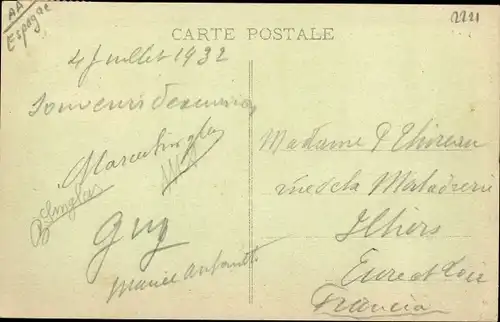 AA
Espagne
2221
CARTE POSTALE
4 Juillet 1932
Souvenir d'excursion
Guy
Marie Antoinette
Madame P Thireau
rue de la Maladrerie
Illiers
Eure et Loir
Francia